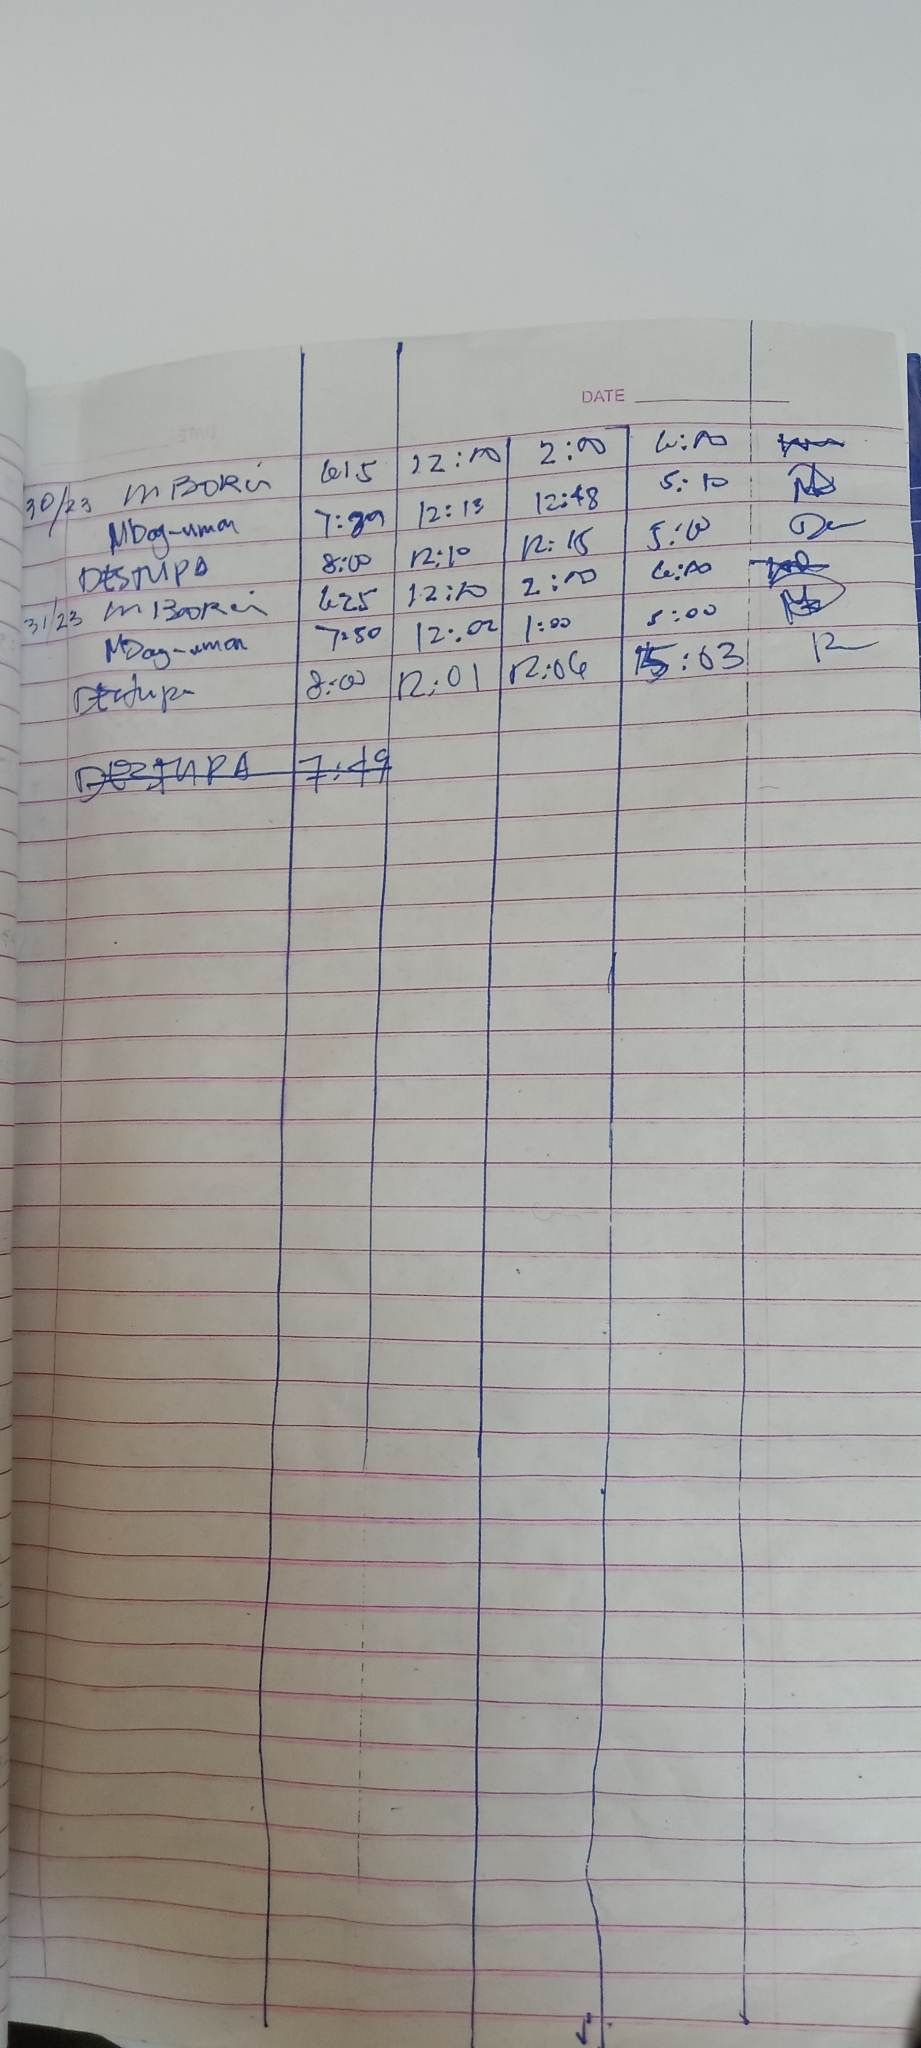 DATE
30/23 MBORci 615 12:00 2:00 4:00
MDag-uman 7:29 12:13 12:48 5:10
DESTUPA 8:00 12:10 12:15 5:00
31/23 MBORci 625 12:10 2:00 4:00
MDag-uman 7:50 12:02 1:00 5:00
Destupa 8:00 12:01 12:06 5:03
DESTUPA 7:49